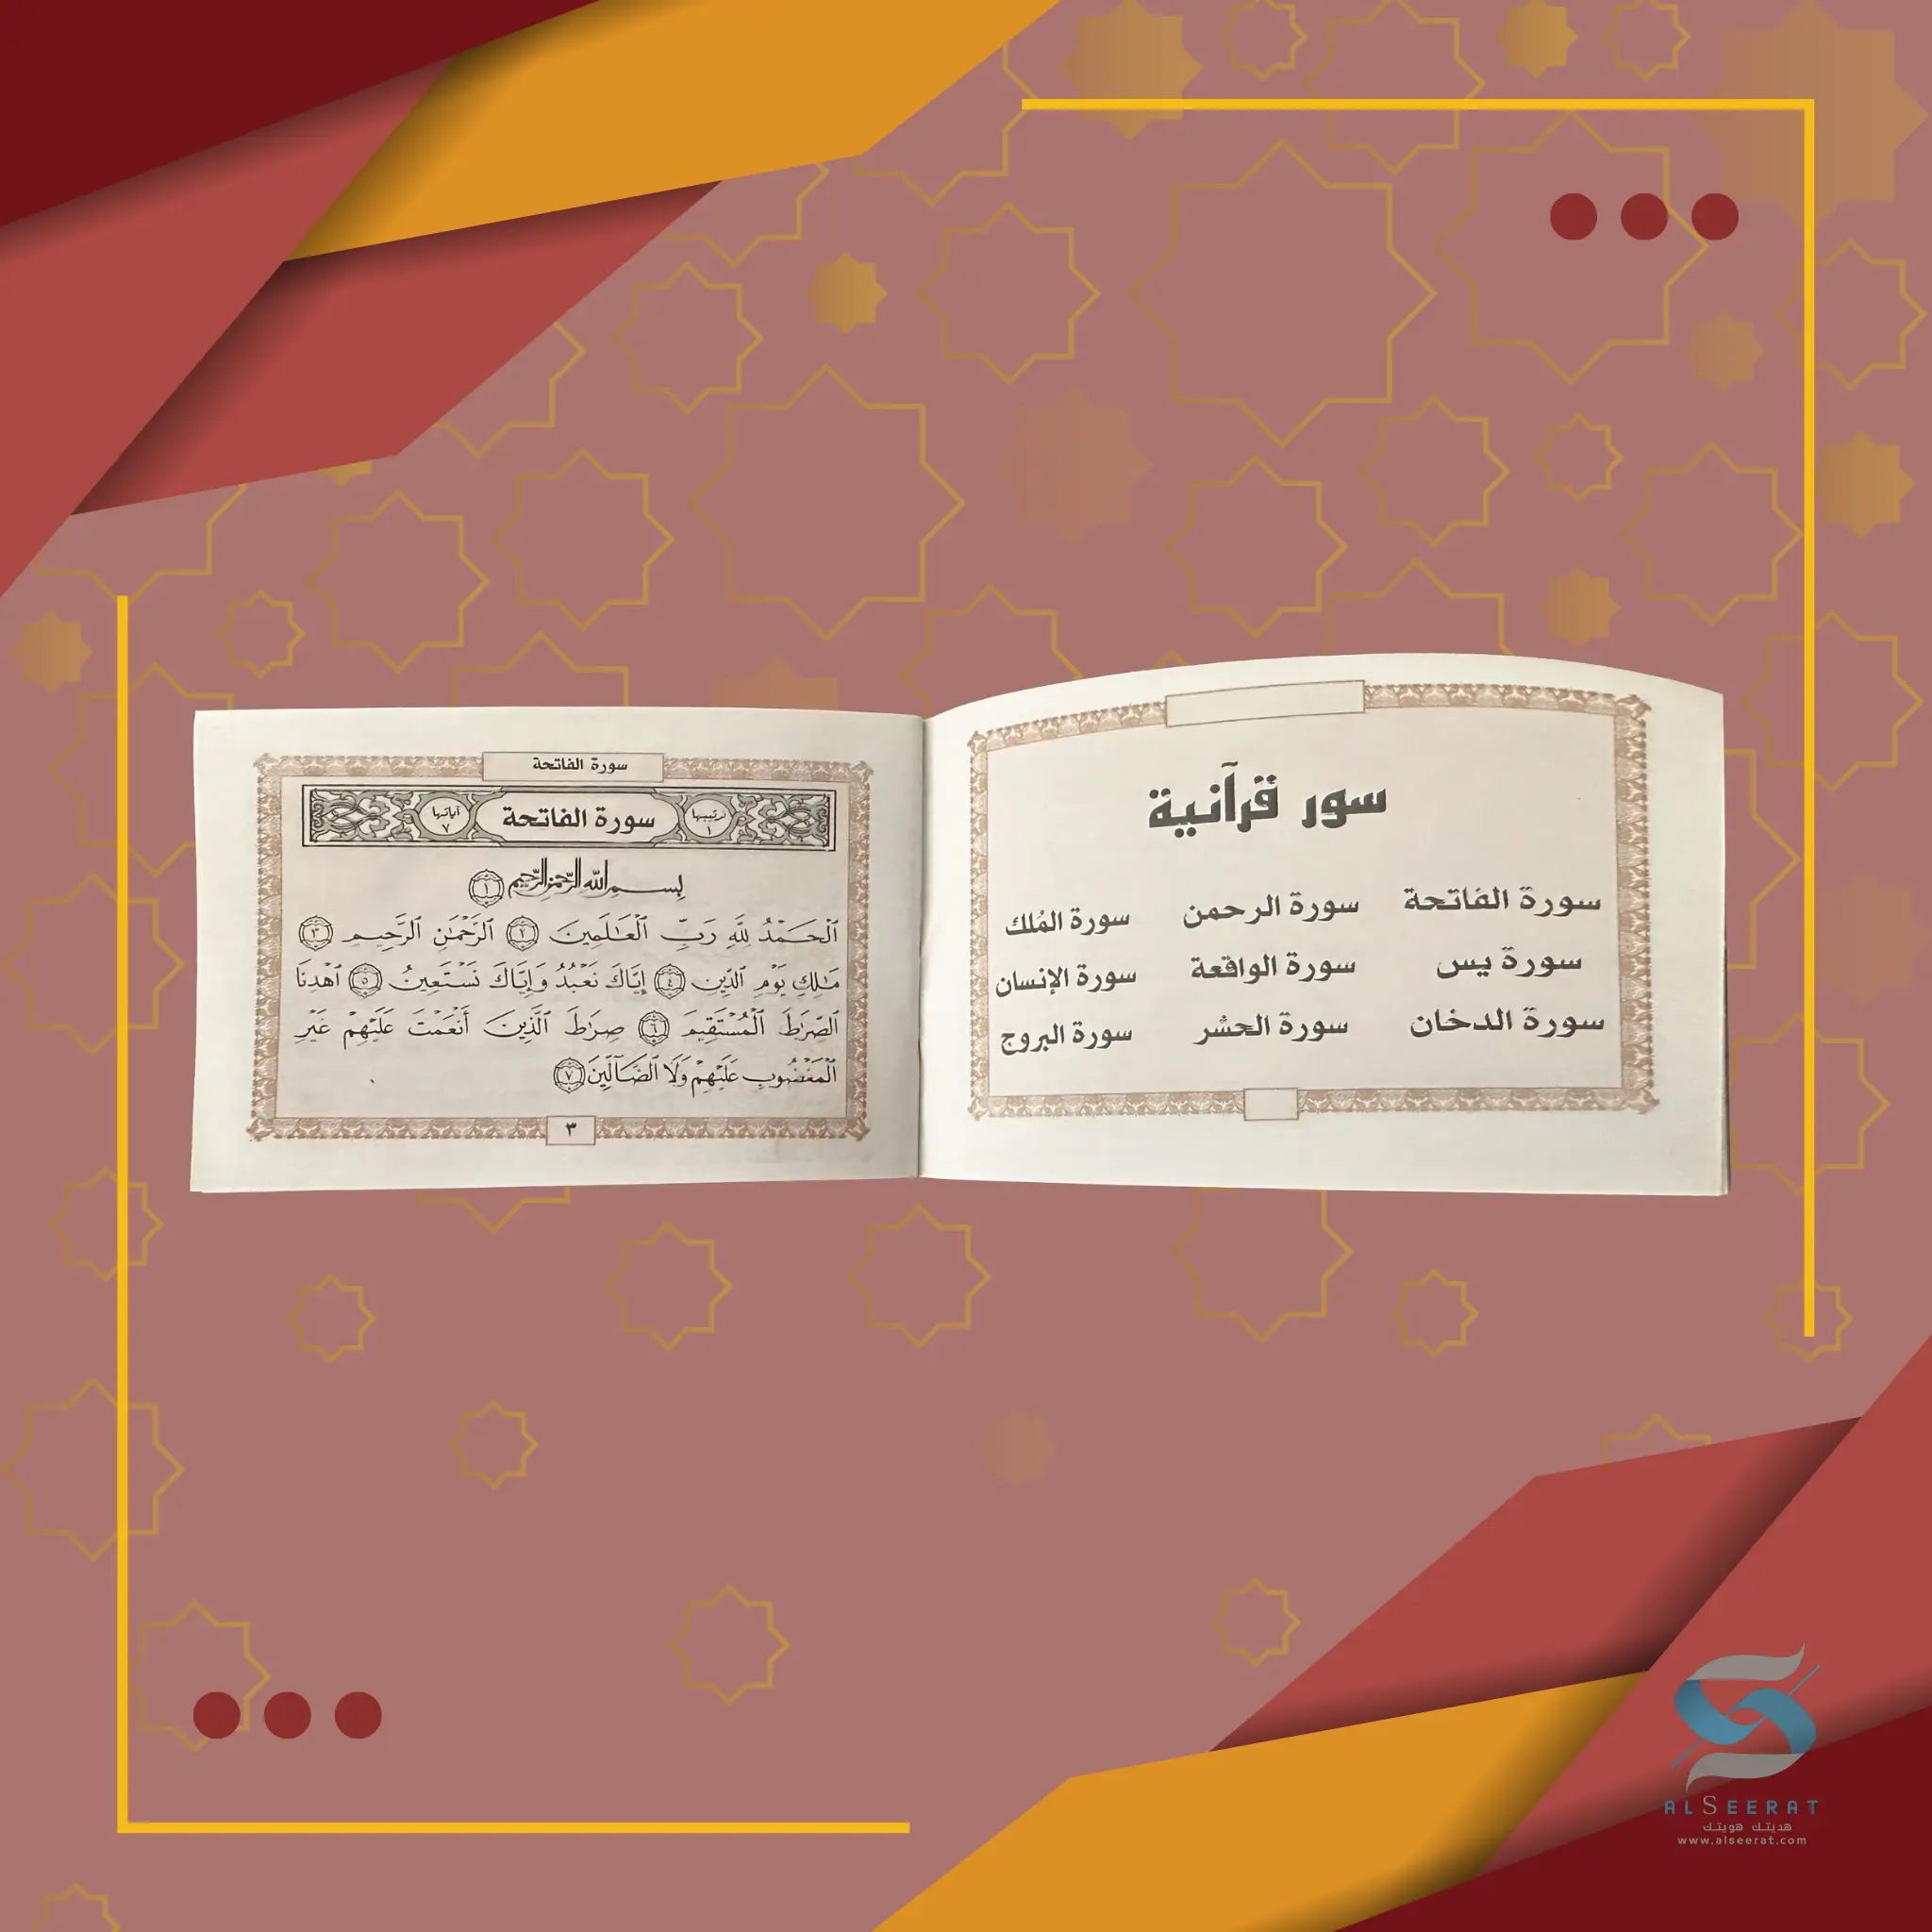 سور قرآنية
سورة الفاتحة سورة الرحمن سورة المُلك
سورة يس سورة الواقعة سورة الإنسان
سورة الدخان سورة الحشر سورة البروج
سورة الفاتحة
ترتيبها ١ سورة الفاتحة آياتها ٧
بِسْمِ اللَّهِ الرَّحْمَٰنِ الرَّحِيمِ ١
ٱلْحَمْدُ لِلَّهِ رَبِّ ٱلْعَٰلَمِينَ ٢ ٱلرَّحْمَٰنِ ٱلرَّحِيمِ ٣
مَٰلِكِ يَوْمِ ٱلدِّينِ ٤ إِيَّاكَ نَعْبُدُ وَإِيَّاكَ نَسْتَعِينُ ٥ ٱهْدِنَا
ٱلصِّرَٰطَ ٱلْمُسْتَقِيمَ ٦ صِرَٰطَ ٱلَّذِينَ أَنْعَمْتَ عَلَيْهِمْ غَيْرِ
ٱلْمَغْضُوبِ عَلَيْهِمْ وَلَا ٱلضَّآلِّينَ ٧
٣
ALSEERAT
هديتك هويتك
www.alseerat.com